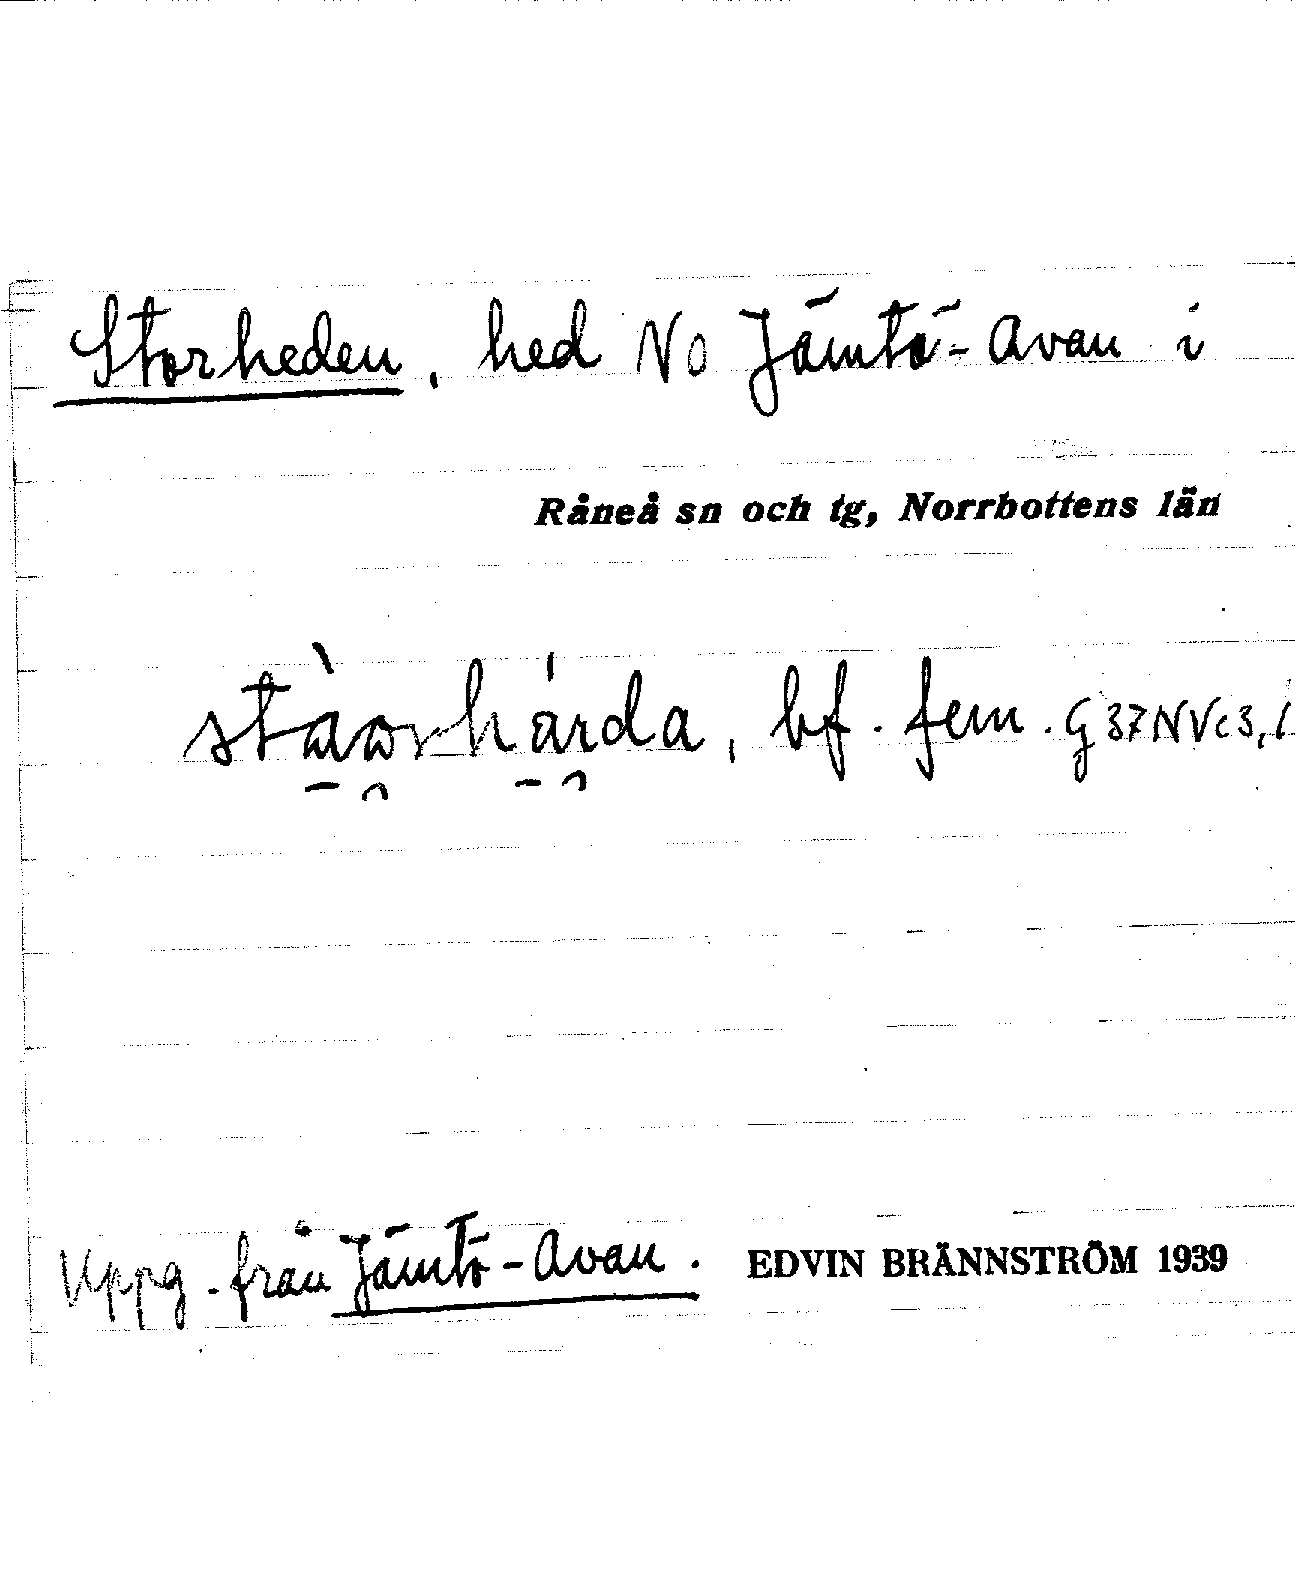 Storheden, hed NO Jämtö-Avan i
Råneå sn och tg, Norrbottens län
bf. fem. G37NVc3,
Uppg. från Jämtö-Avan. EDVIN BRÄNNSTRÖM 1939